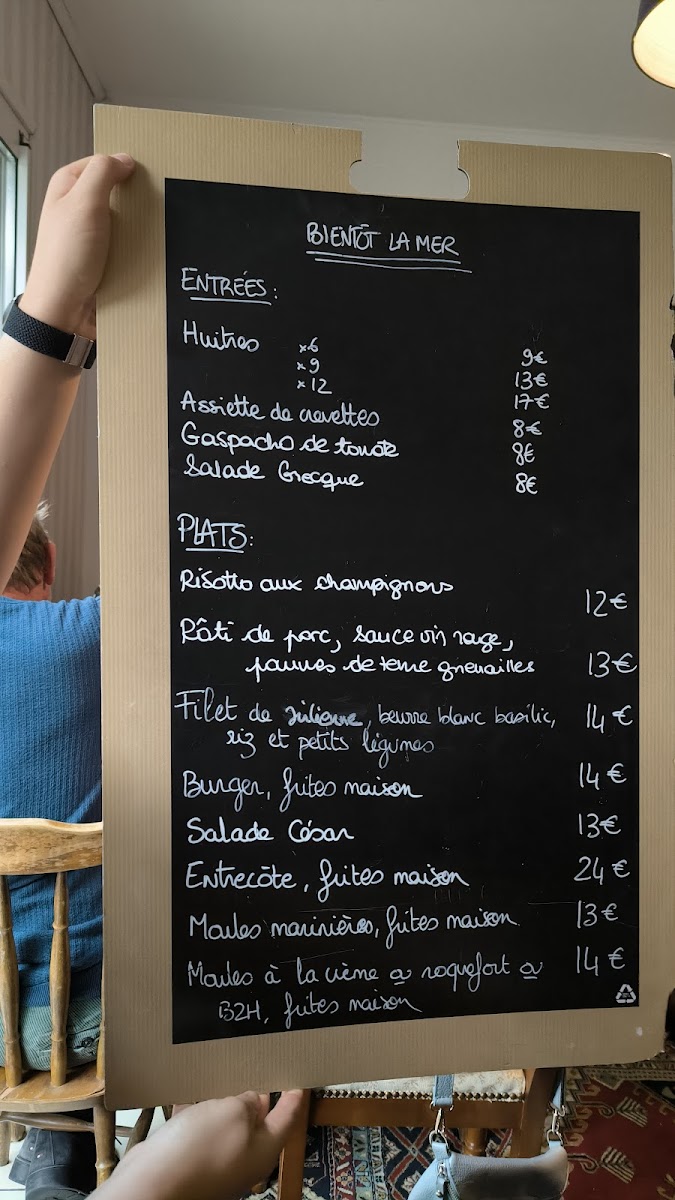 BIENTÔT LA MER
ENTRÉES :
Huîtres x6 9€
x9 13€
x12 17€
Assiette de crevettes 8€
Gaspacho de tomate 8€
Salade Grecque 8€
PLATS :
Risotto aux champignons 12€
Rôti de porc, sauce vin rouge,
pommes de terre grenailles 13€
Filet de julienne, beurre blanc basilic, 14€
riz et petits légumes
Burger, frites maison 14€
Salade César 13€
Entrecôte, frites maison 24€
Moules marinières, frites maison 13€
Moules à la crème ou roquefort ou 14€
B2H, frites maison